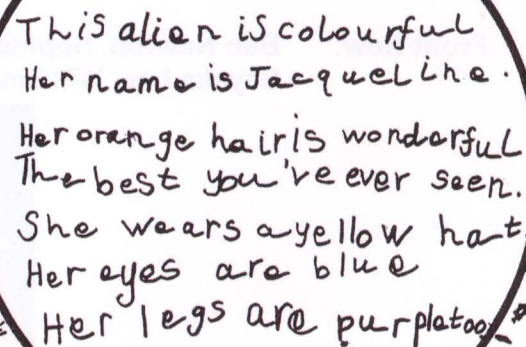 This alien is colourful
Her name is Jacqueline.
Her orange hair is wonderful
The best you've ever seen.
She wears a yellow hat
Her eyes are blue
Her legs are purple too